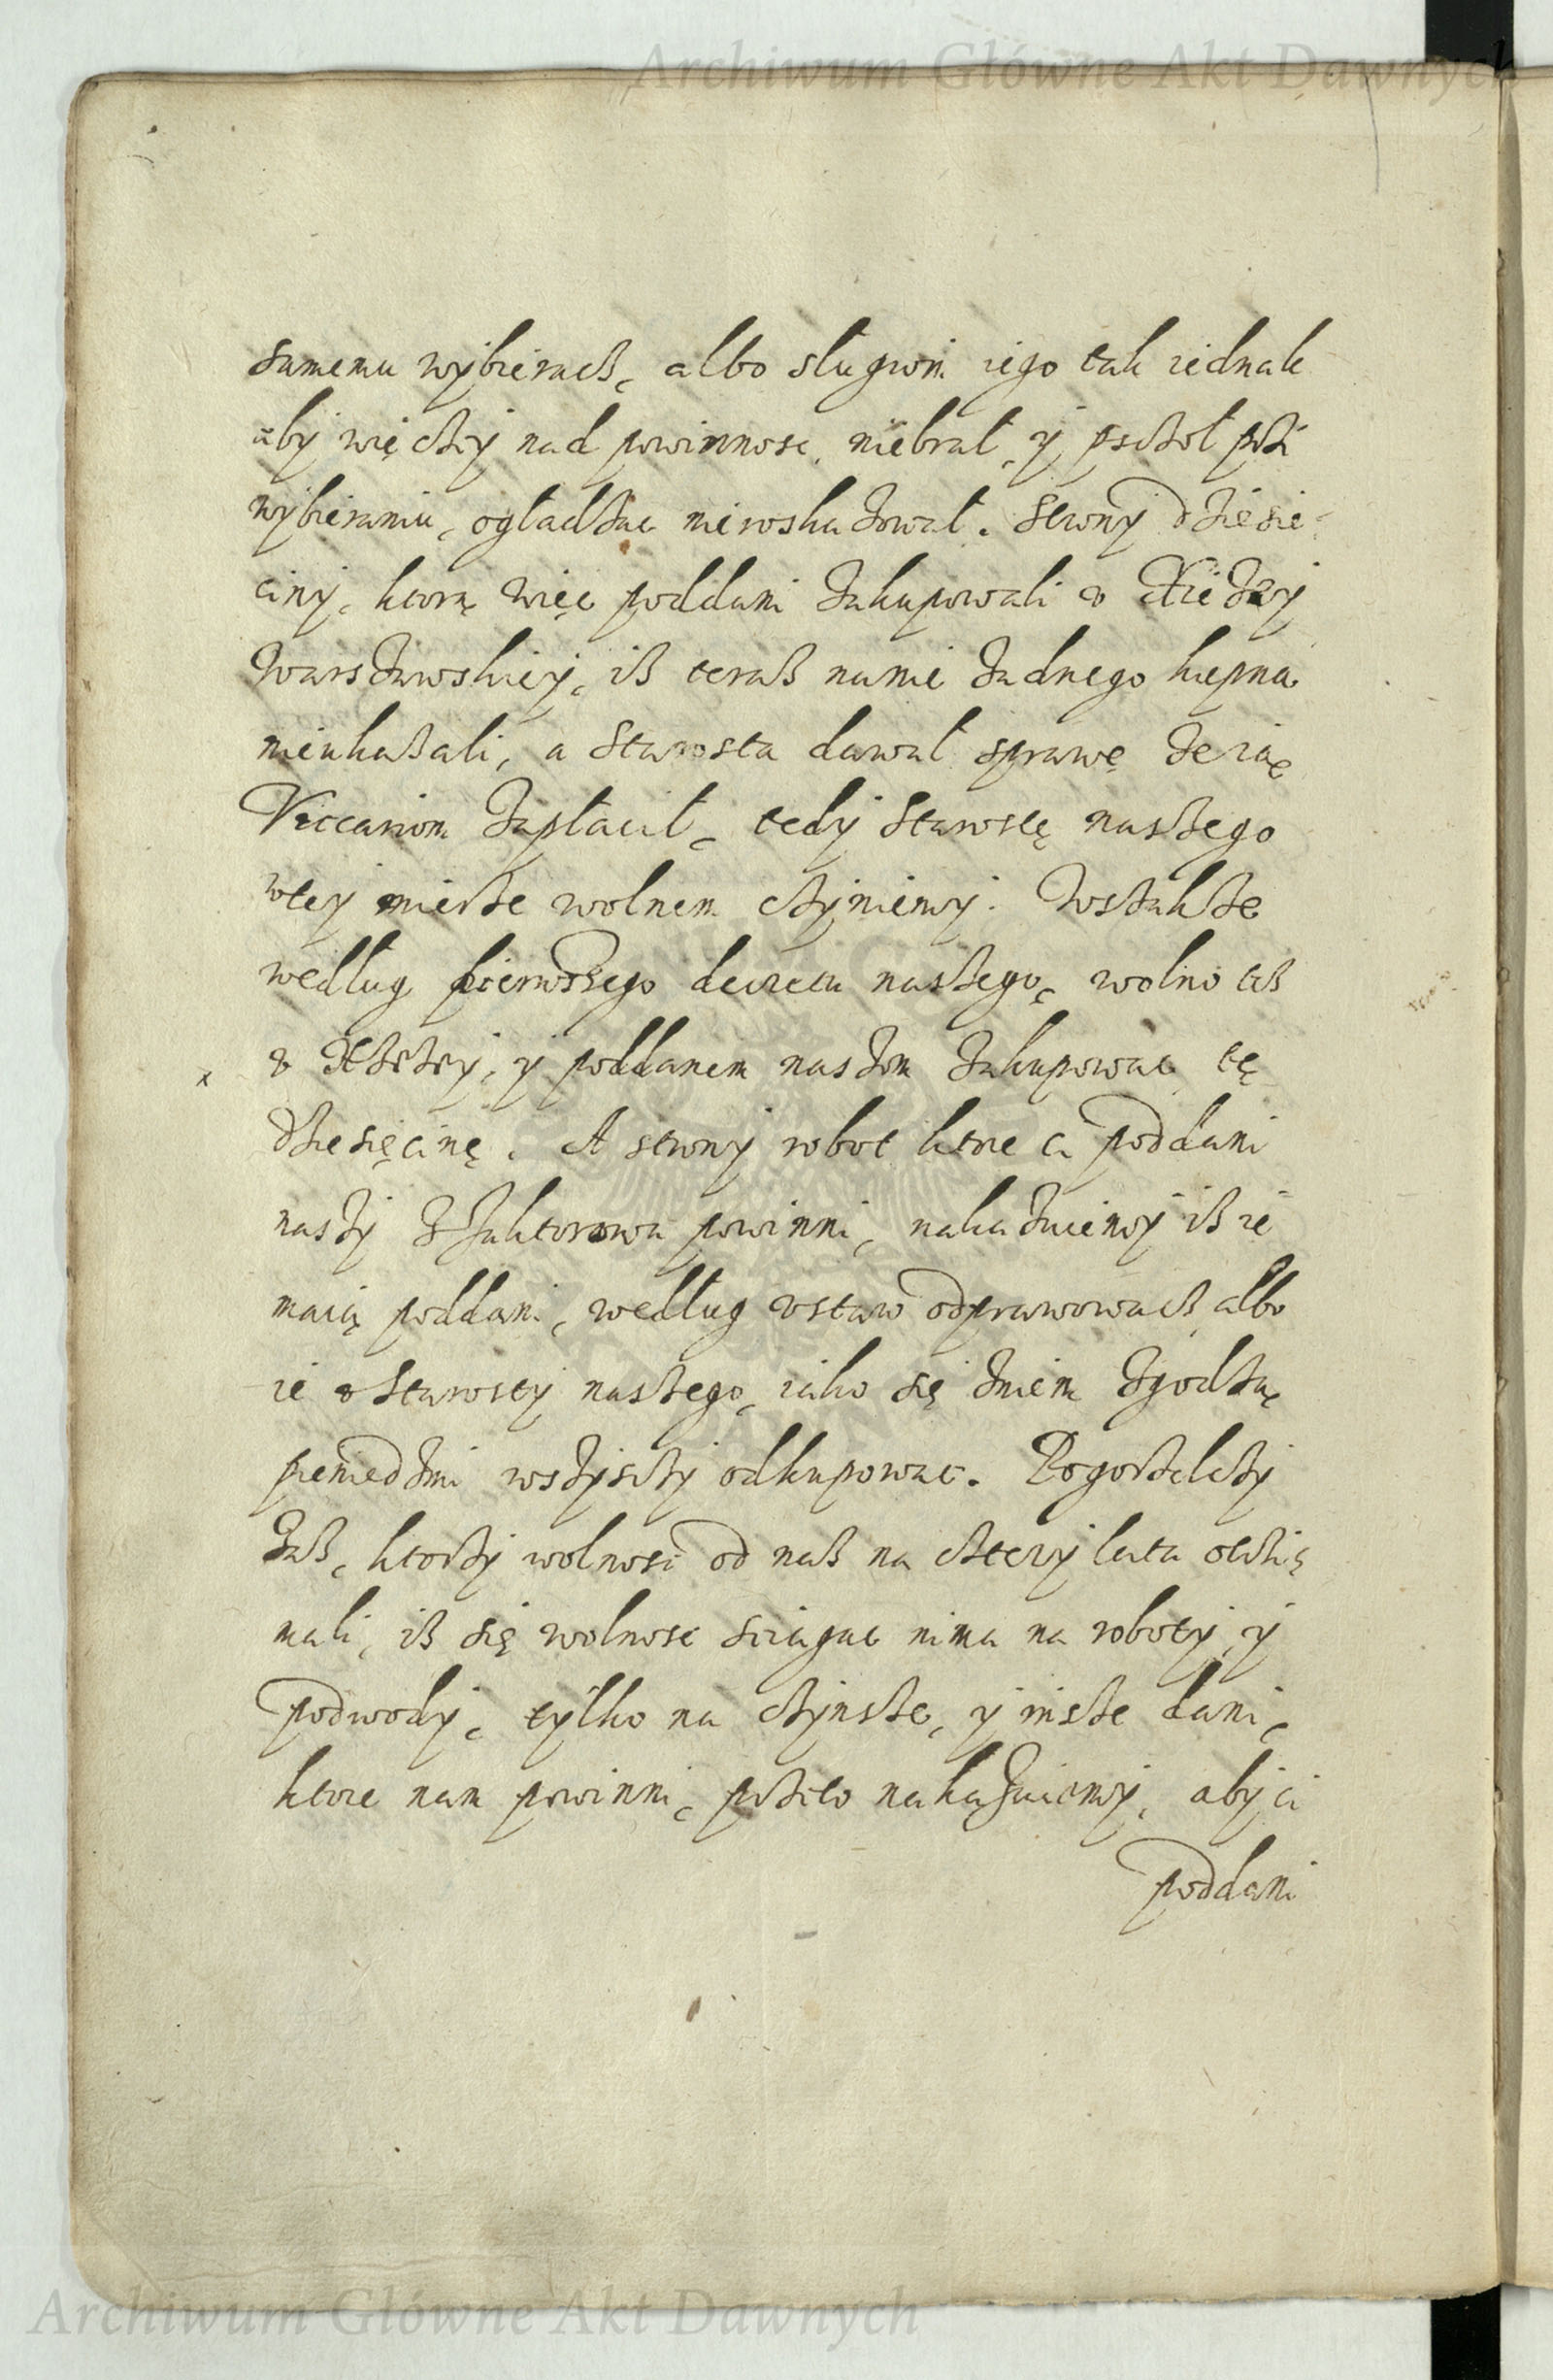 Archiwum Główne Akt Dawnych
samemu wybieracz, albo sługwm iego tak iednak
aby więczy nad powinnosc niebrał, y psczoł przi
wybieraniu, ogladzac nieroskazował. Strony dziesie-
ciny, ktorą więc poddani zakupowali v Xiedzy
Warszawskiey, isz terasz namie żadnego kupna
nieukazali, a Starosta dawał sprawę że ią
Viccariom zapłacił, tedy Starostę naszego
wtey mierze wolnem czyniemy. Wszakże
według pierwszego decretu naszego, wolno tesz
v Xsżeży, y poddanem naszem zakupowac tę
dziesięcinę. A strony robot ktore ci poddani
naszy z powinni, nakazuiemy isz ie
maią poddani, według vstaw odprawowacz albo
ie v Starosty naszego, iako się zniem zgodzą
pieniedzmi wszysczy odkupowac. Pogorzelczy
zasz, ktorzy wolnosc od nasz na cztery lata otrzi
mali, isz się wolnosc sciagac nima na roboty, y
podwody, tylko na czynsze, y insze dani,
ktore nam powinni, przeto nakazuiemy, aby ci
poddani
Archiwum Główne Akt Dawnych